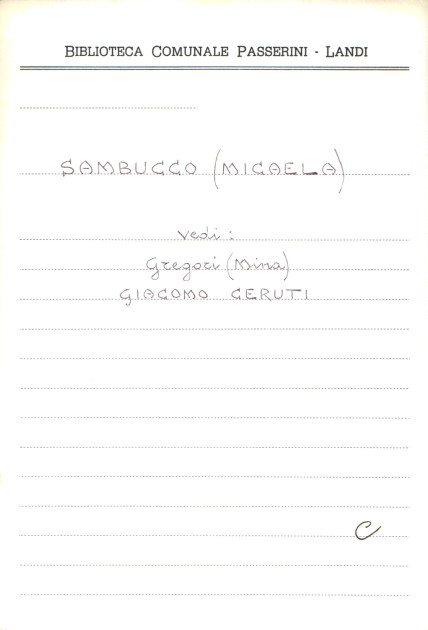 BIBLIOTECA COMUNALE PASSERINI - LANDI
SAMBUCCO (MICAELA)
vedi :
Gregori (Mina)
GIACOMO CERUTI
C